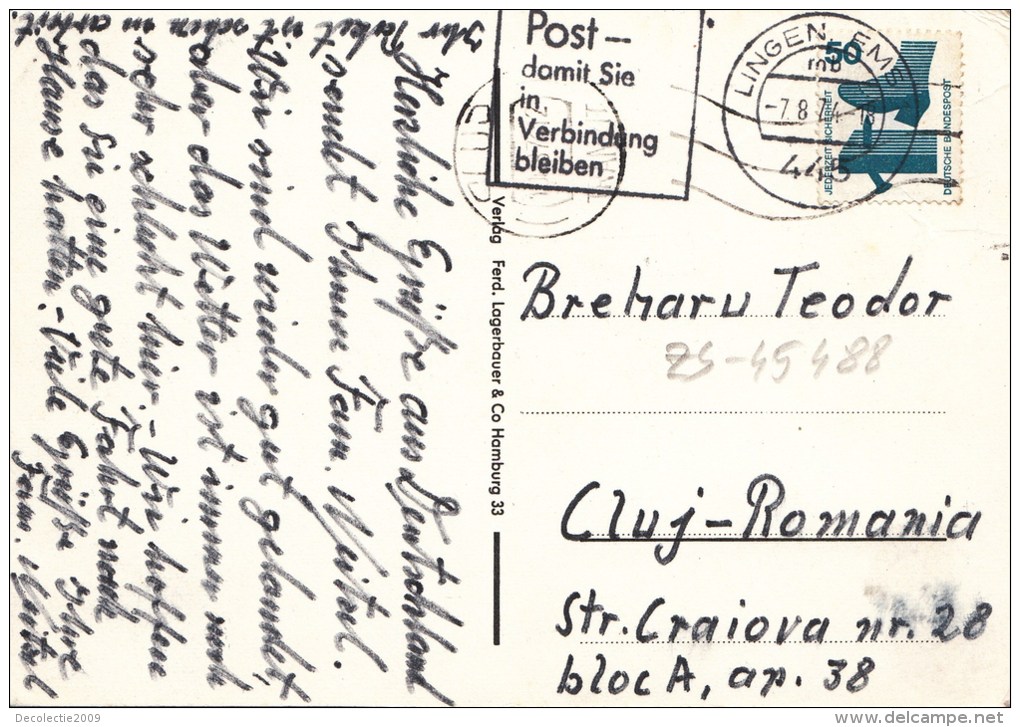 Herzliche Grüße aus Deutschland
sendet Ihnen Fam.
Wir sind wieder gut gelandet
aber das Wetter ist immer noch
sehr schlecht hier. - Wir hoffen
das Sie eine gute Fahrt nach
Hause hatten. - Viele Grüße Ihre
Fam.
Ihr Paket ist schon in
arbeit.
Verlag Ferd. Lagerbauer & Co Hamburg 33
Post –
damit Sie
in
Verbindung
bleiben
LINGEN, EMS
mb
-7.8.7
445
50
JEDERZEIT SICHERHEIT
DEUTSCHE BUNDESPOST
Breharu Teodor
25-45488
Cluj - Romania
Str. Craiova nr. 28
bloc A, ap. 38
Decolectie2009
delcampe.net